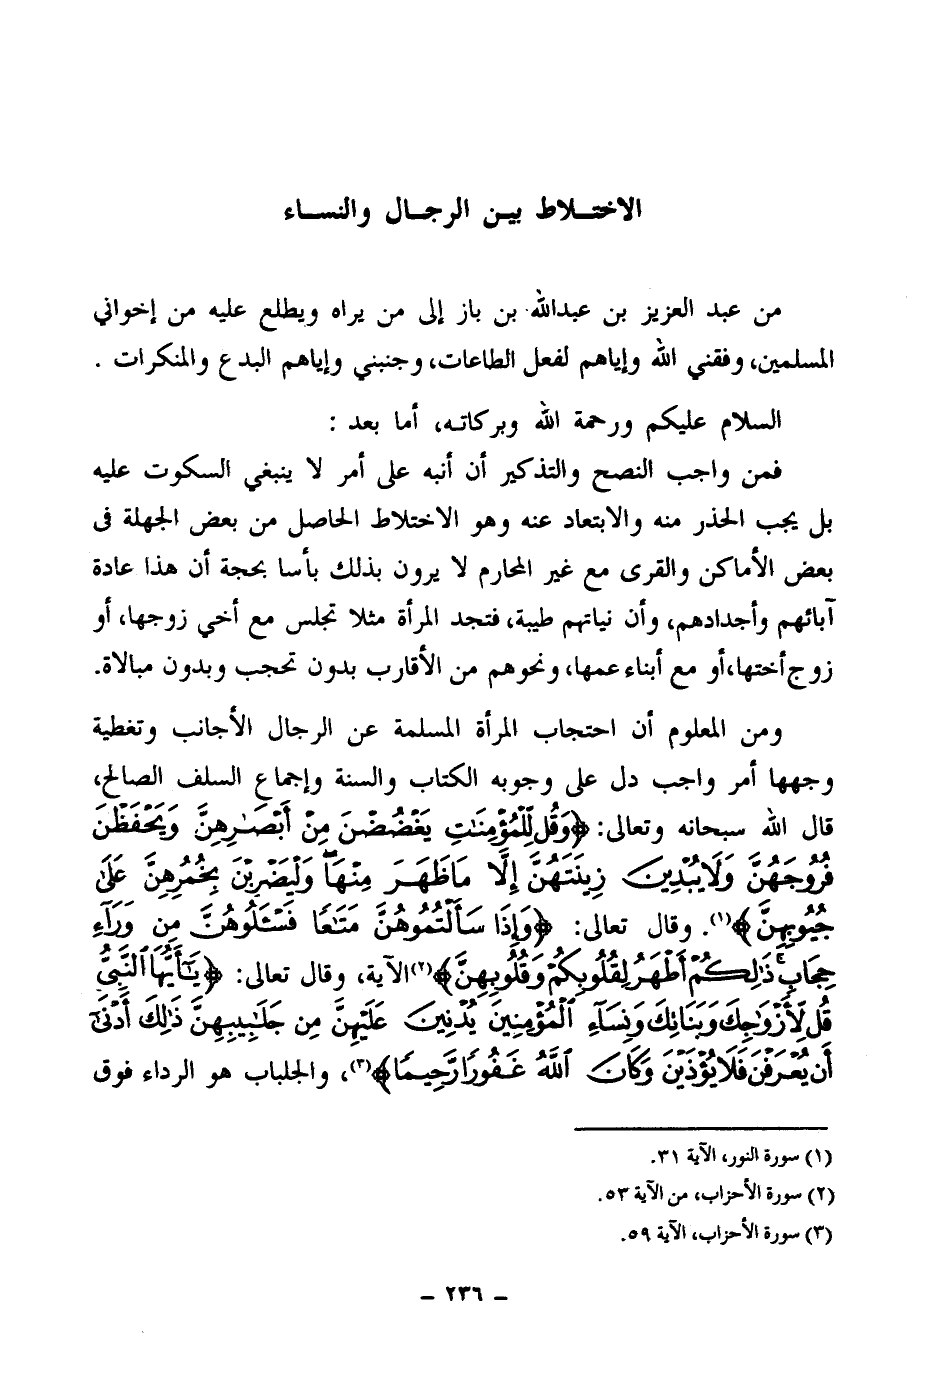 الاختـلاط بيـن الرجـال والنسـاء
من عبد العزيز بن عبدالله بن باز إلى من يراه ويطلع عليه من إخواني
المسلمين، وفقني الله وإياهم لفعل الطاعات، وجنبني وإياهم البدع والمنكرات .
السلام عليكم ورحمة الله وبركاتـه، أما بعد :
فمن واجب النصح والتذكير أن أنبه على أمر لا ينبغي السكوت عليه
بل يجب الحذر منه والابتعاد عنه وهو الاختلاط الحاصل من بعض الجهلة فى
بعض الأماكن والقرى مع غير المحارم لا يرون بذلك بأسا بحجة أن هذا عادة
آبائهم وأجدادهم، وأن نياتهم طيبة، فتجد المرأة مثلا تجلس مع أخي زوجها، أو
زوج أختها،أو مع أبناء عمها، ونحوهم من الأقارب بدون تحجب وبدون مبالاة.
ومن المعلوم أن احتجاب المرأة المسلمة عن الرجال الأجانب وتغطية
وجهها أمر واجب دل على وجوبه الكتاب والسنة وإجماع السلف الصالح،
قال الله سبحانه وتعالى: ﴿وَقُل لِّلْمُؤْمِنَٰتِ يَغْضُضْنَ مِنْ أَبْصَٰرِهِنَّ وَيَحْفَظْنَ
فُرُوجَهُنَّ وَلَا يُبْدِينَ زِينَتَهُنَّ إِلَّا مَا ظَهَرَ مِنْهَا ۖ وَلْيَضْرِبْنَ بِخُمُرِهِنَّ عَلَىٰ
جُيُوبِهِنَّ﴾(١). وقال تعالى: ﴿وَإِذَا سَأَلْتُمُوهُنَّ مَتَٰعًا فَسْـَٔلُوهُنَّ مِن وَرَآءِ
حِجَابٍ ۚ ذَٰلِكُمْ أَطْهَرُ لِقُلُوبِكُمْ وَقُلُوبِهِنَّ﴾(٢)الآية، وقال تعالى: ﴿يَٰٓأَيُّهَا ٱلنَّبِىُّ
قُل لِّأَزْوَٰجِكَ وَبَنَاتِكَ وَنِسَآءِ ٱلْمُؤْمِنِينَ يُدْنِينَ عَلَيْهِنَّ مِن جَلَٰبِيبِهِنَّ ذَٰلِكَ أَدْنَىٰٓ
أَن يُعْرَفْنَ فَلَا يُؤْذَيْنَ وَكَانَ ٱللَّهُ غَفُورًا رَّحِيمًا﴾(٣)، والجلباب هو الرداء فوق
(١) سورة النور، الآية ٣١.
(٢) سورة الأحزاب، من الآية ٥٣.
(٣) سورة الأحزاب، الآية ٥٩.
– ٢٣٦ –